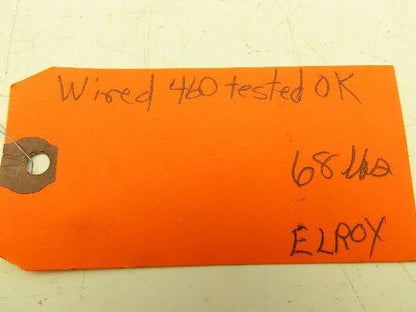 Wired 460 tested OK
68 lbs
ELROY